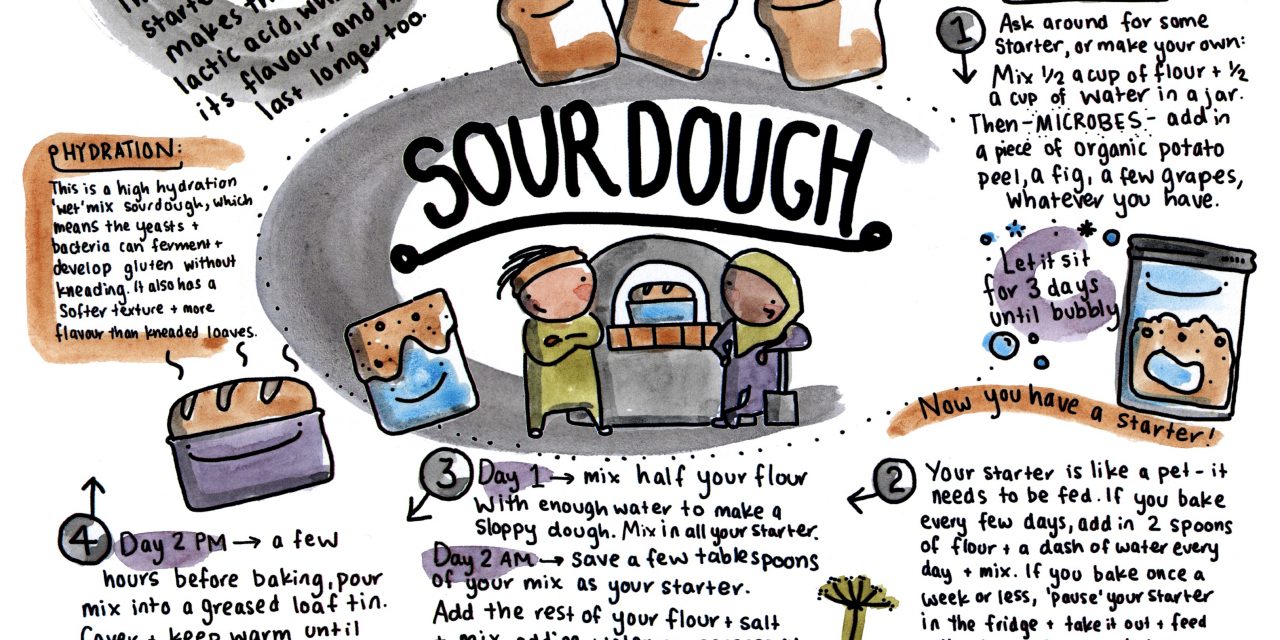 starte
makes th
lactic acid, wh
its flavour, and
last longer too.
SOURDOUGH
HYDRATION:
This is a high hydration
'wet' mix sourdough, which
means the yeasts +
bacteria can ferment +
develop gluten without
kneading. It also has a
softer texture + more
flavour than kneaded loaves.
1
Ask around for some
Starter, or make your own:
Mix 1/2 a cup of flour + 1/2
a cup of water in a jar.
Then - MICROBES - add in
a piece of organic potato
peel, a fig, a few grapes,
whatever you have.
Let it sit
for 3 days
until bubbly
Now you have a starter!
2
Your starter is like a pet - it
needs to be fed. If you bake
every few days, add in 2 spoons
of flour + a dash of water every
day + mix. If you bake once a
week or less, 'pause' your starter
in the fridge + take it out + feed
3
Day 1 → mix half your flour
with enough water to make a
sloppy dough. Mix in all your starter.
Day 2 AM → save a few tablespoons
of your mix as your starter.
Add the rest of your flour + salt
+ mix, adding
4
Day 2 PM → a few
hours before baking, pour
mix into a greased loaf tin.
Cover + keep warm until